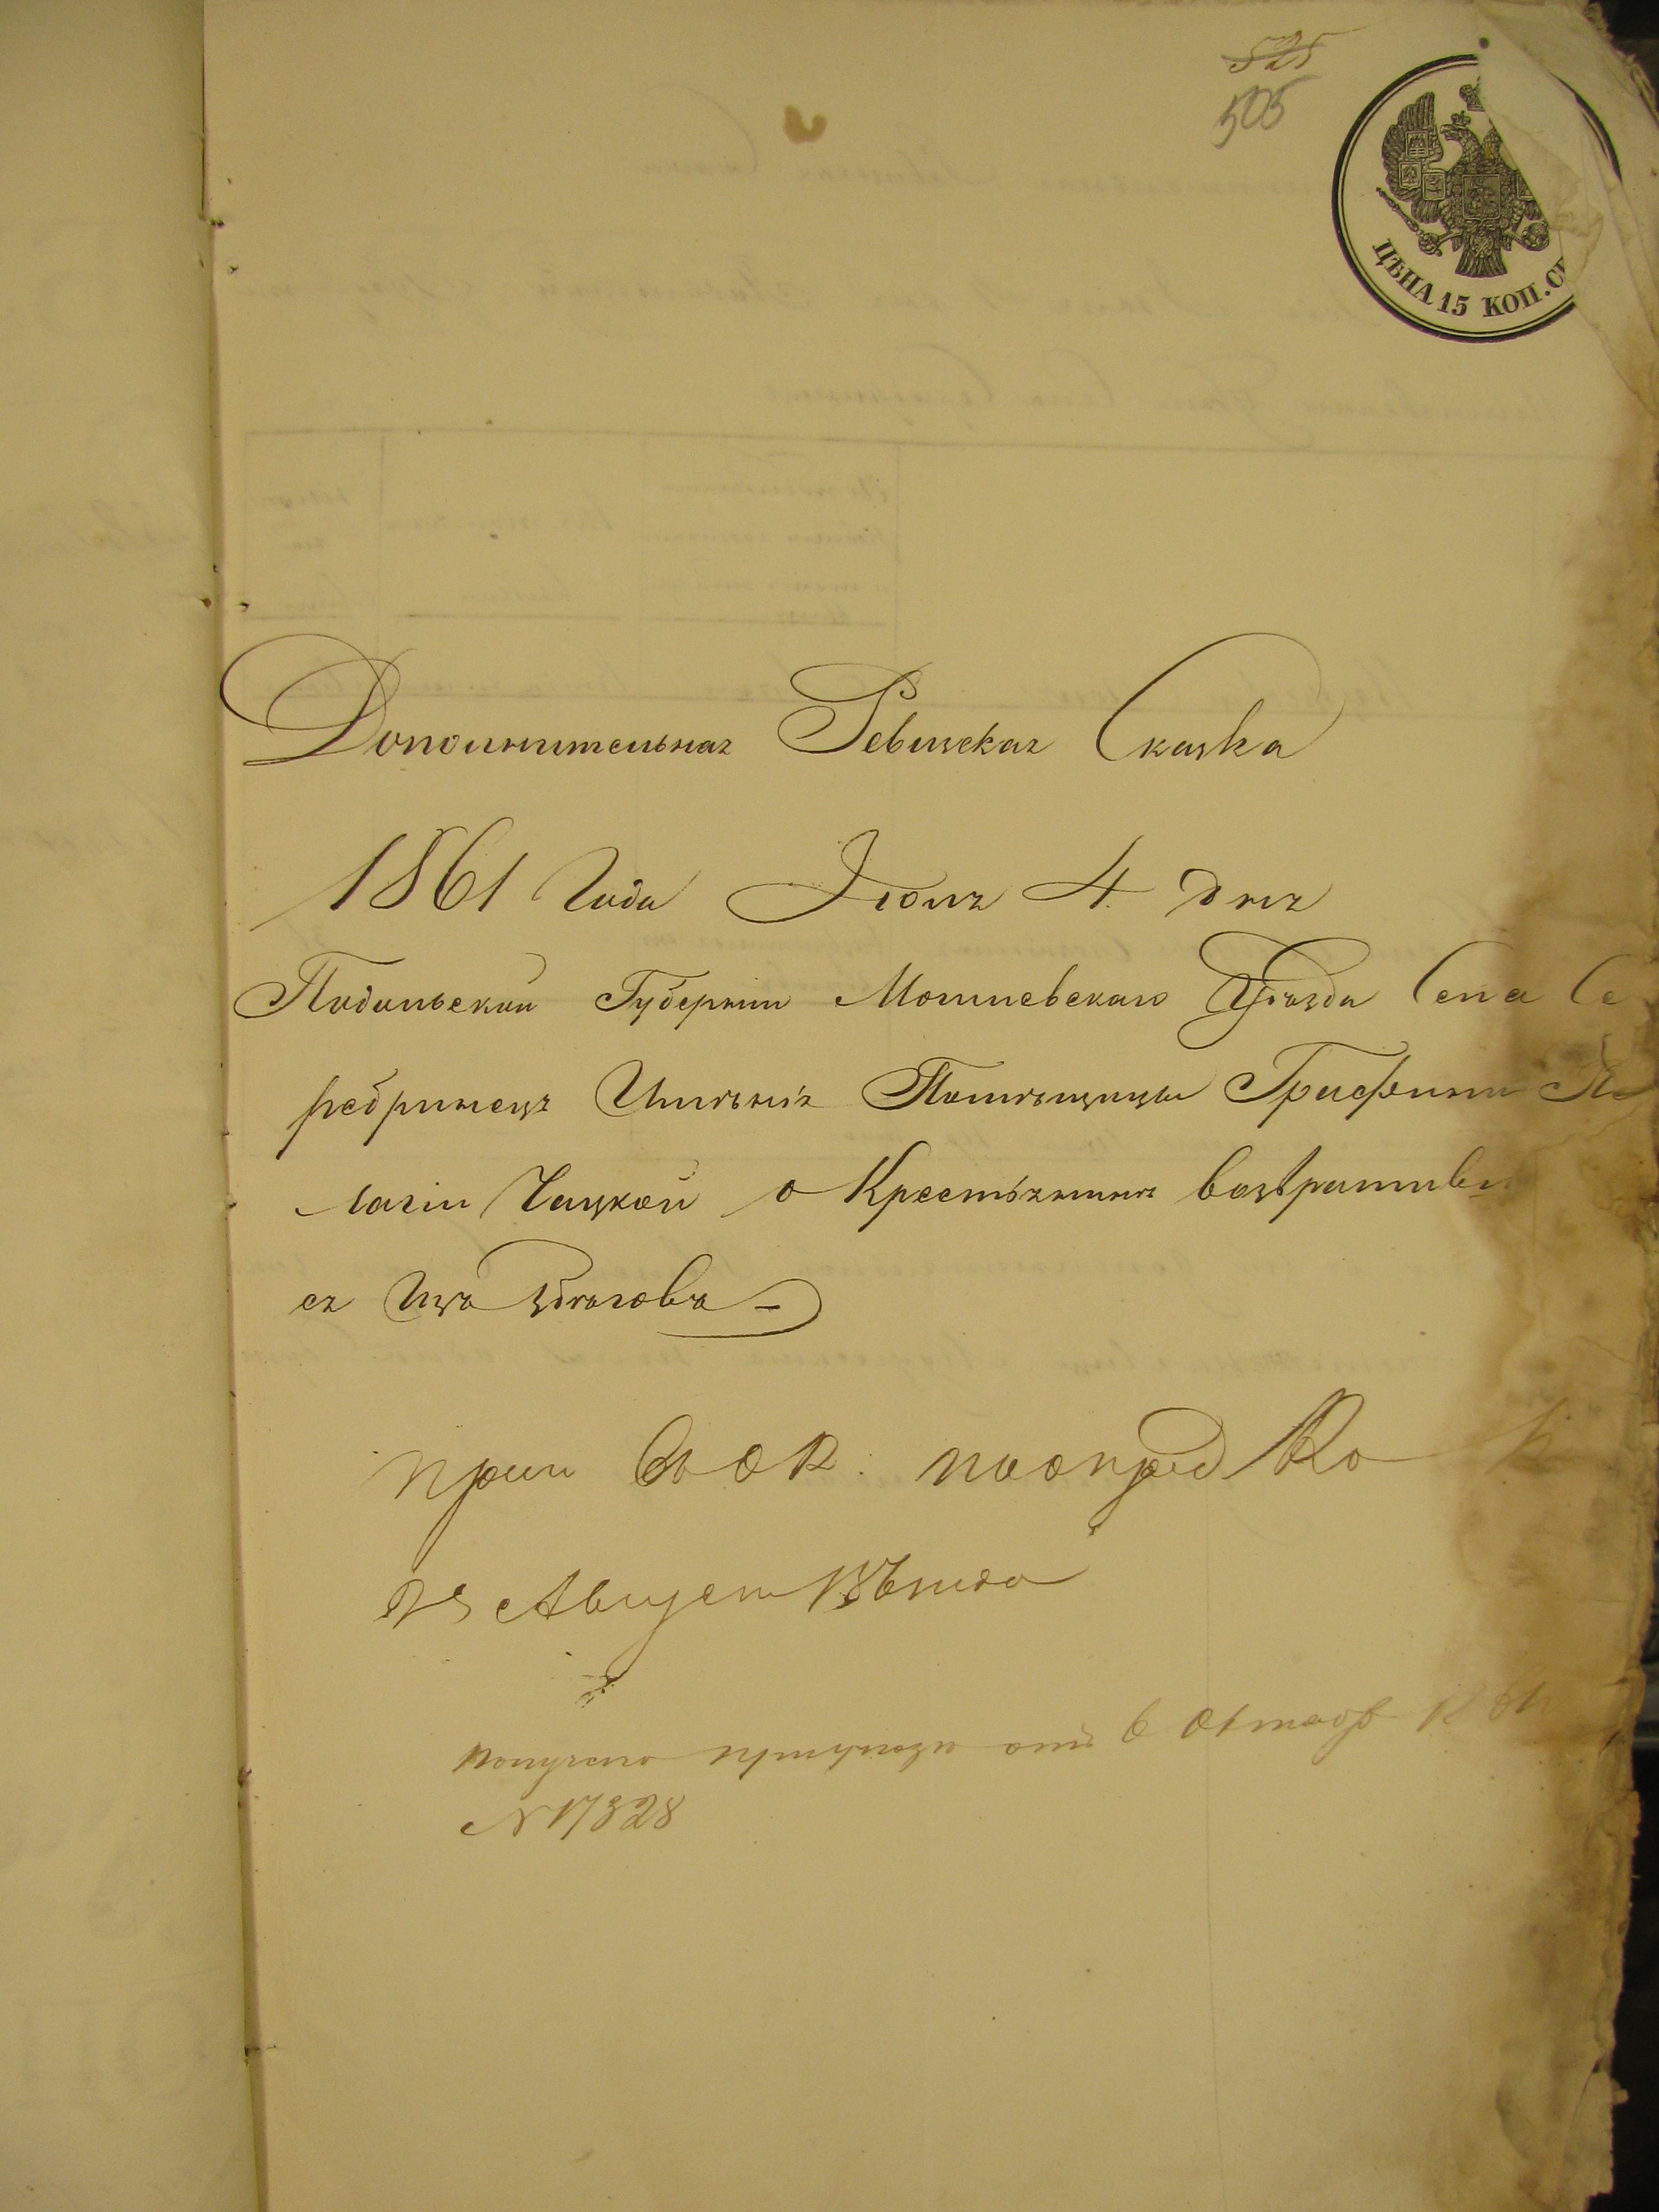 525
505
ЦѢНА 15 КОП. СЕ
Дополнительная Ревизская Сказка
1861 Года Іюля 4 дня
Подольской Губерніи Могилевскаго Уѣзда Села Се
ребринецъ Имѣнія Помѣщицы Графини Пе
лагіи Чацкой о Крестьянинѣ возвратив
ся Изъ Бѣговъ
25 Август 1861 года
Получено от 6 Октябр 1861
N 17328